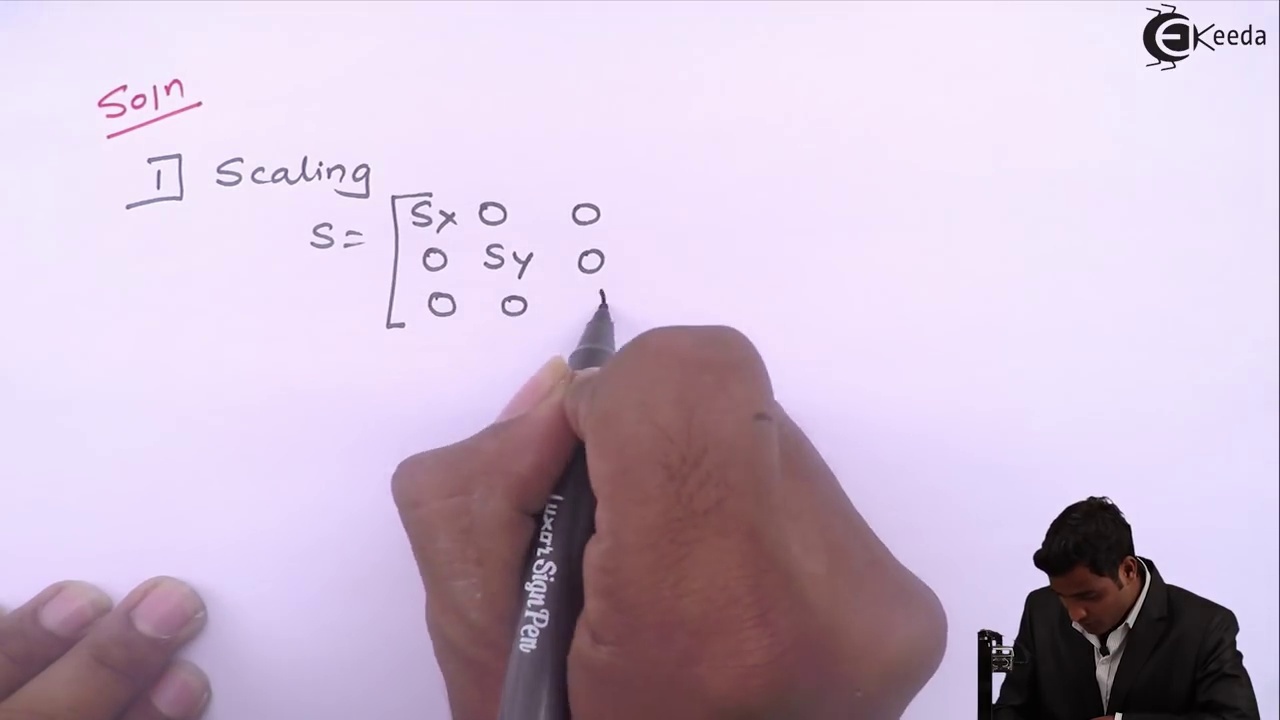 EKeeda
Soln
1] Scaling
S= [Sx 0 0
0 Sy 0
0 0
Luxor Sign Pen